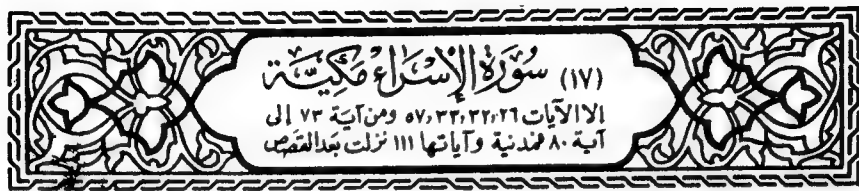 (١٧) سُورَةُ الإِسْرَاءِ مَكِّيَّة
الا الآيات ٢٦، ٣٢، ٣٣، ٥٧ ومن آية ٧٣ إلى
آية ٨٠ فمدنية وآياتها ١١١ نزلت بعد القصص